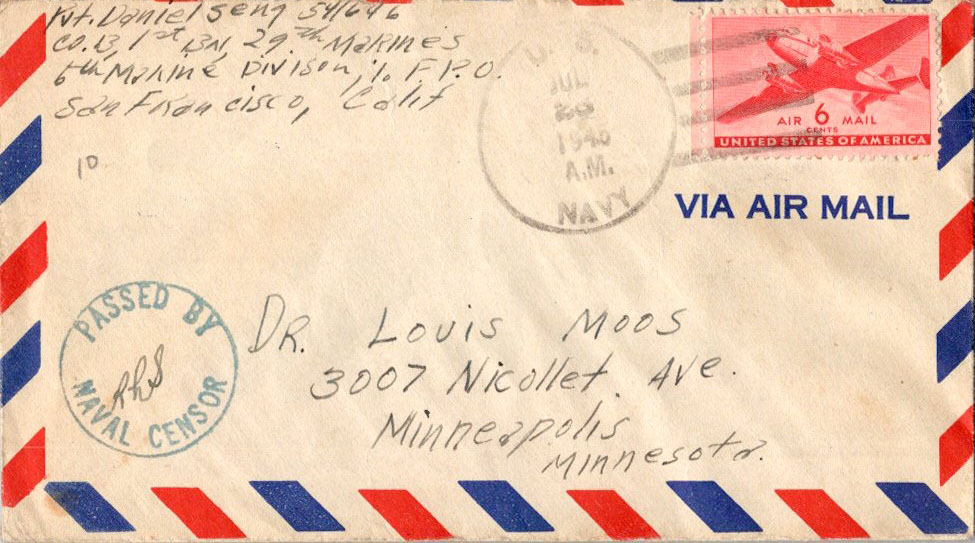 Pvt. Daniel Seng 541646
CO. B, 1st BN, 29th Marines
6th Marine Divison, % F.P.O.
San Francisco, Calif
10
U. S.
JUL
1945
A.M.
NAVY
AIR 6 MAIL
CENTS
UNITED STATES OF AMERICA
VIA AIR MAIL
PASSED BY
RhS
NAVAL CENSOR
DR. Louis Moos
3007 Nicollet Ave.
Minneapolis
Minnesota.